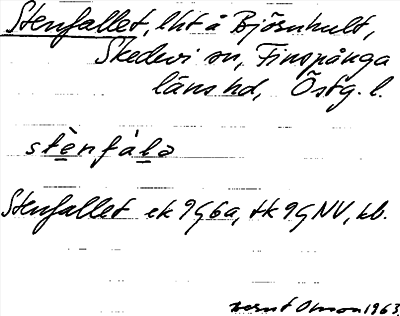 Stenfallet, lht å Björnhult,
Skedevi sn, Finspånga
läns hd, Östg. l.
stènfálə
Stenfallet ek 9G6a, tk 9G NV, bb.
Bernt Olsson 1963.